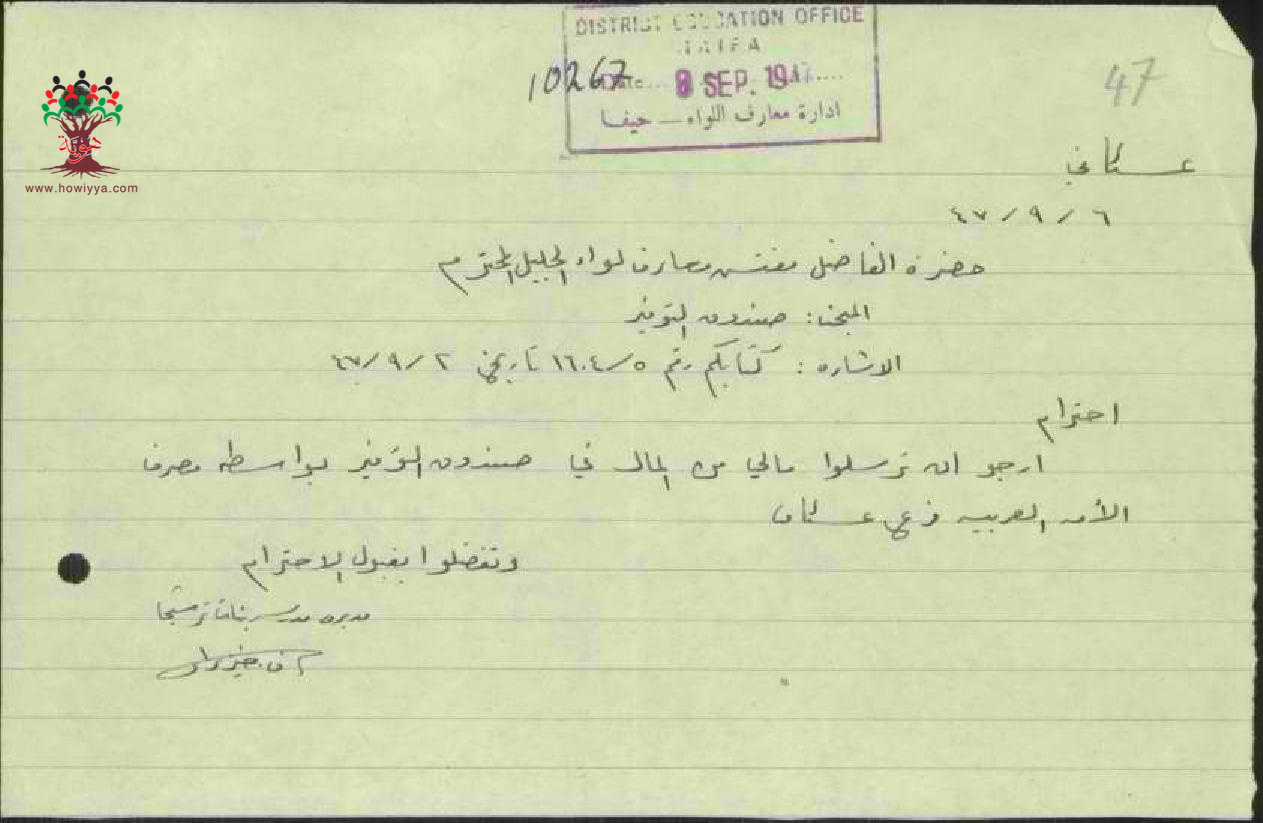 DISTRICT EDUCATION OFFICE
HAIFA
10267
Date... 8 SEP. 1947....
ادارة معارف اللواء — حيفا
47
هوية
www.howiyya.com
عكا في
٦ / ٩ / ٤٧
حضرة الفاضل مفتش معارف لواء الجليل المحترم
المبحث: صندوق التوفير
الاشاره: كتابكم رقم ١٦٠٤/٥ تاريخ ٢ / ٩ / ٤٧
احترام
ارجو ان ترسلوا مالي من المال في صندوق التوفير بواسطه مصرف
الأمه العربيه فرعي عكا
وتفضلوا بقبول الاحترام
مديره مدرسة بنات ترشيحا